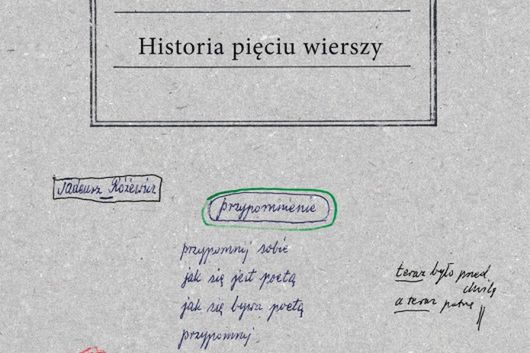 Historia pięciu wierszy
Tadeusz Różewicz
przypomnienie
przypomnij sobie
jak się jest poetą
jak się bywa poetą
przypomnij
teraz było przed
chwilą
a teraz patrzę